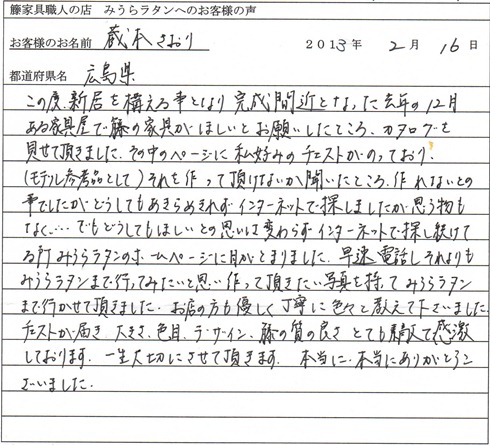 籐家具職人の店　みうらラタンへのお客様の声
お客様のお名前　蔵本さおり　2013年2月16日
都道府県名　広島県
この度、新居を構える事となり完成間近となった去年の12月
ある家具屋で籐の家具がほしいとお願いしたところ、カタログを
見せて頂きました。その中のページに私好みのチェストがのっており、
(モデル参考品として)それを作って頂けないか聞いたところ、作れないとの
事でしたがどうしてもあきらめきれずインターネットで探しましたが思う物も
なく…。でもどうしてもほしいとの思いは変わらずインターネットで探し続けて
る所みうらラタンのホームページに目がとまりました。早速、電話しそれよりも
みうらラタンまで行ってみたいと思い作って頂きたい写真を持ってみうらラタン
まで行かせて頂きました。お店の方も優しく丁寧に色々と教えて下さいました。
チェストが届き、大きさ、色目、デザイン、籐の質の良さ、とても素敵で感激
しております。一生大切にさせて頂きます。本当に、本当にありがとうご
ざいました。